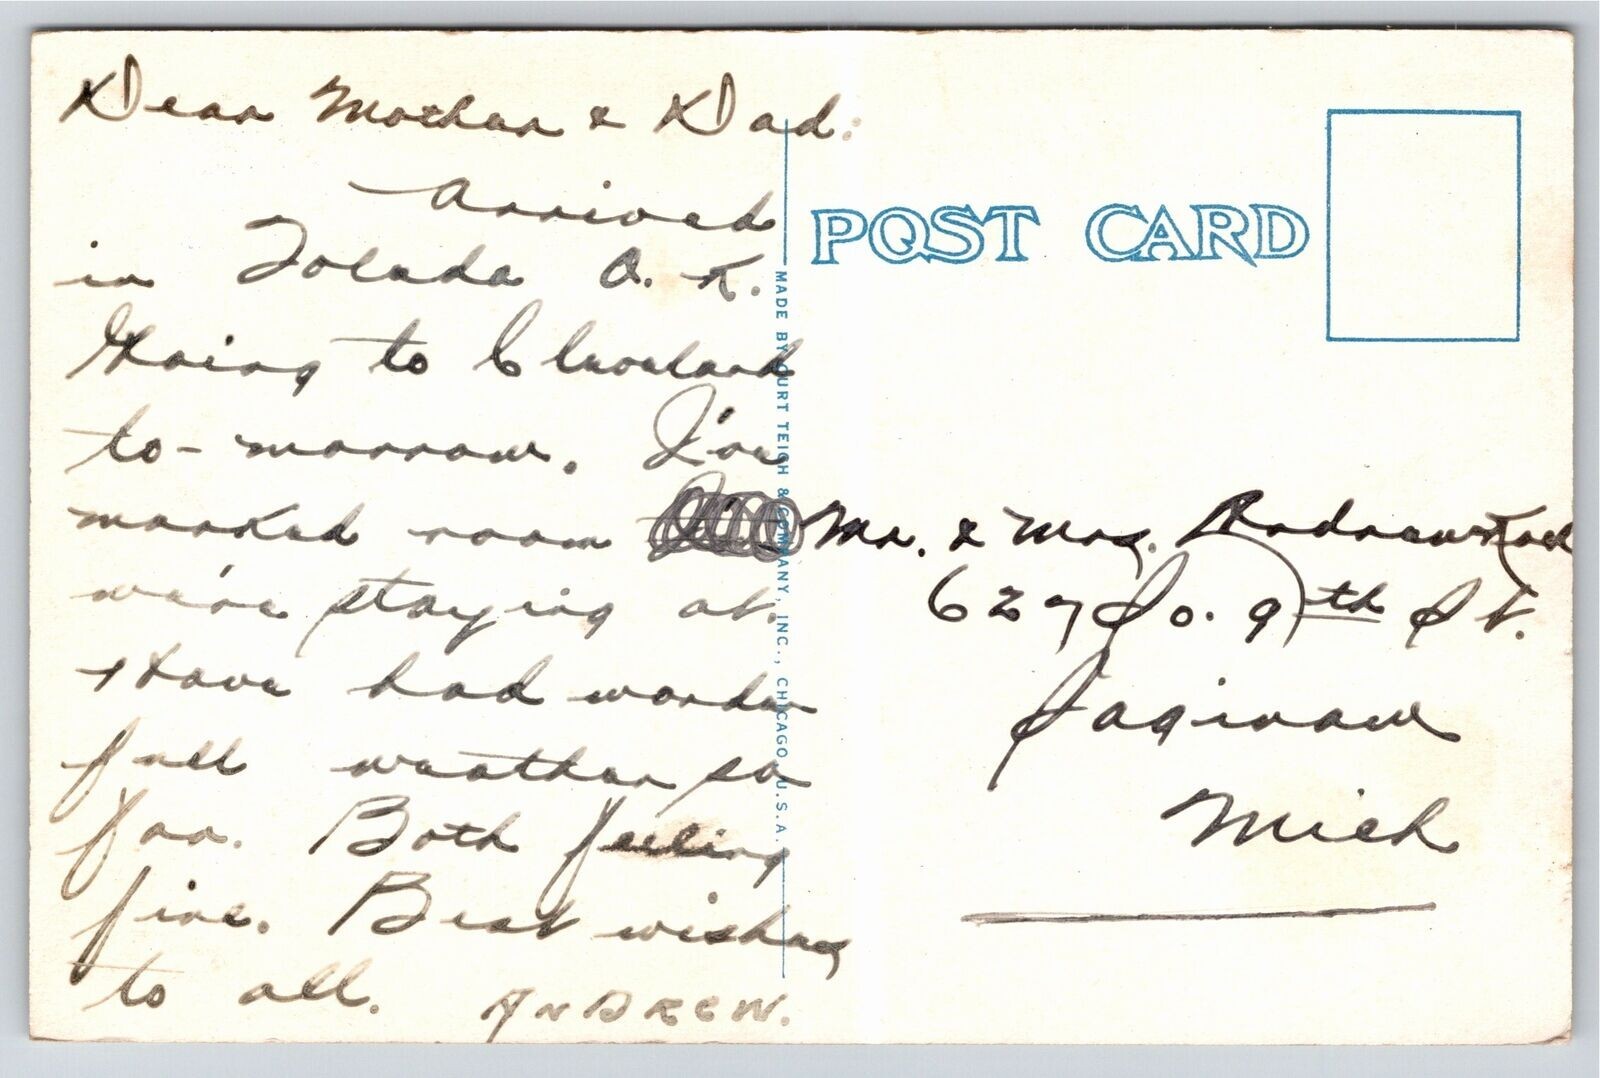 Dear Mother & Dad:
Arrived
in Toledo O.K.
Going to Cleveland
to-morrow. I've
marked room
we're staying at.
Have had wonder
full weather so
far. Both feeling
fine. Best wishes
to all. ANDREW.
POST CARD
MADE BY CURT TEICH & COMPANY, INC., CHICAGO, U.S.A.
Mr. & Mrs. Andrew
627 So. 9th St.
Saginaw
Mich